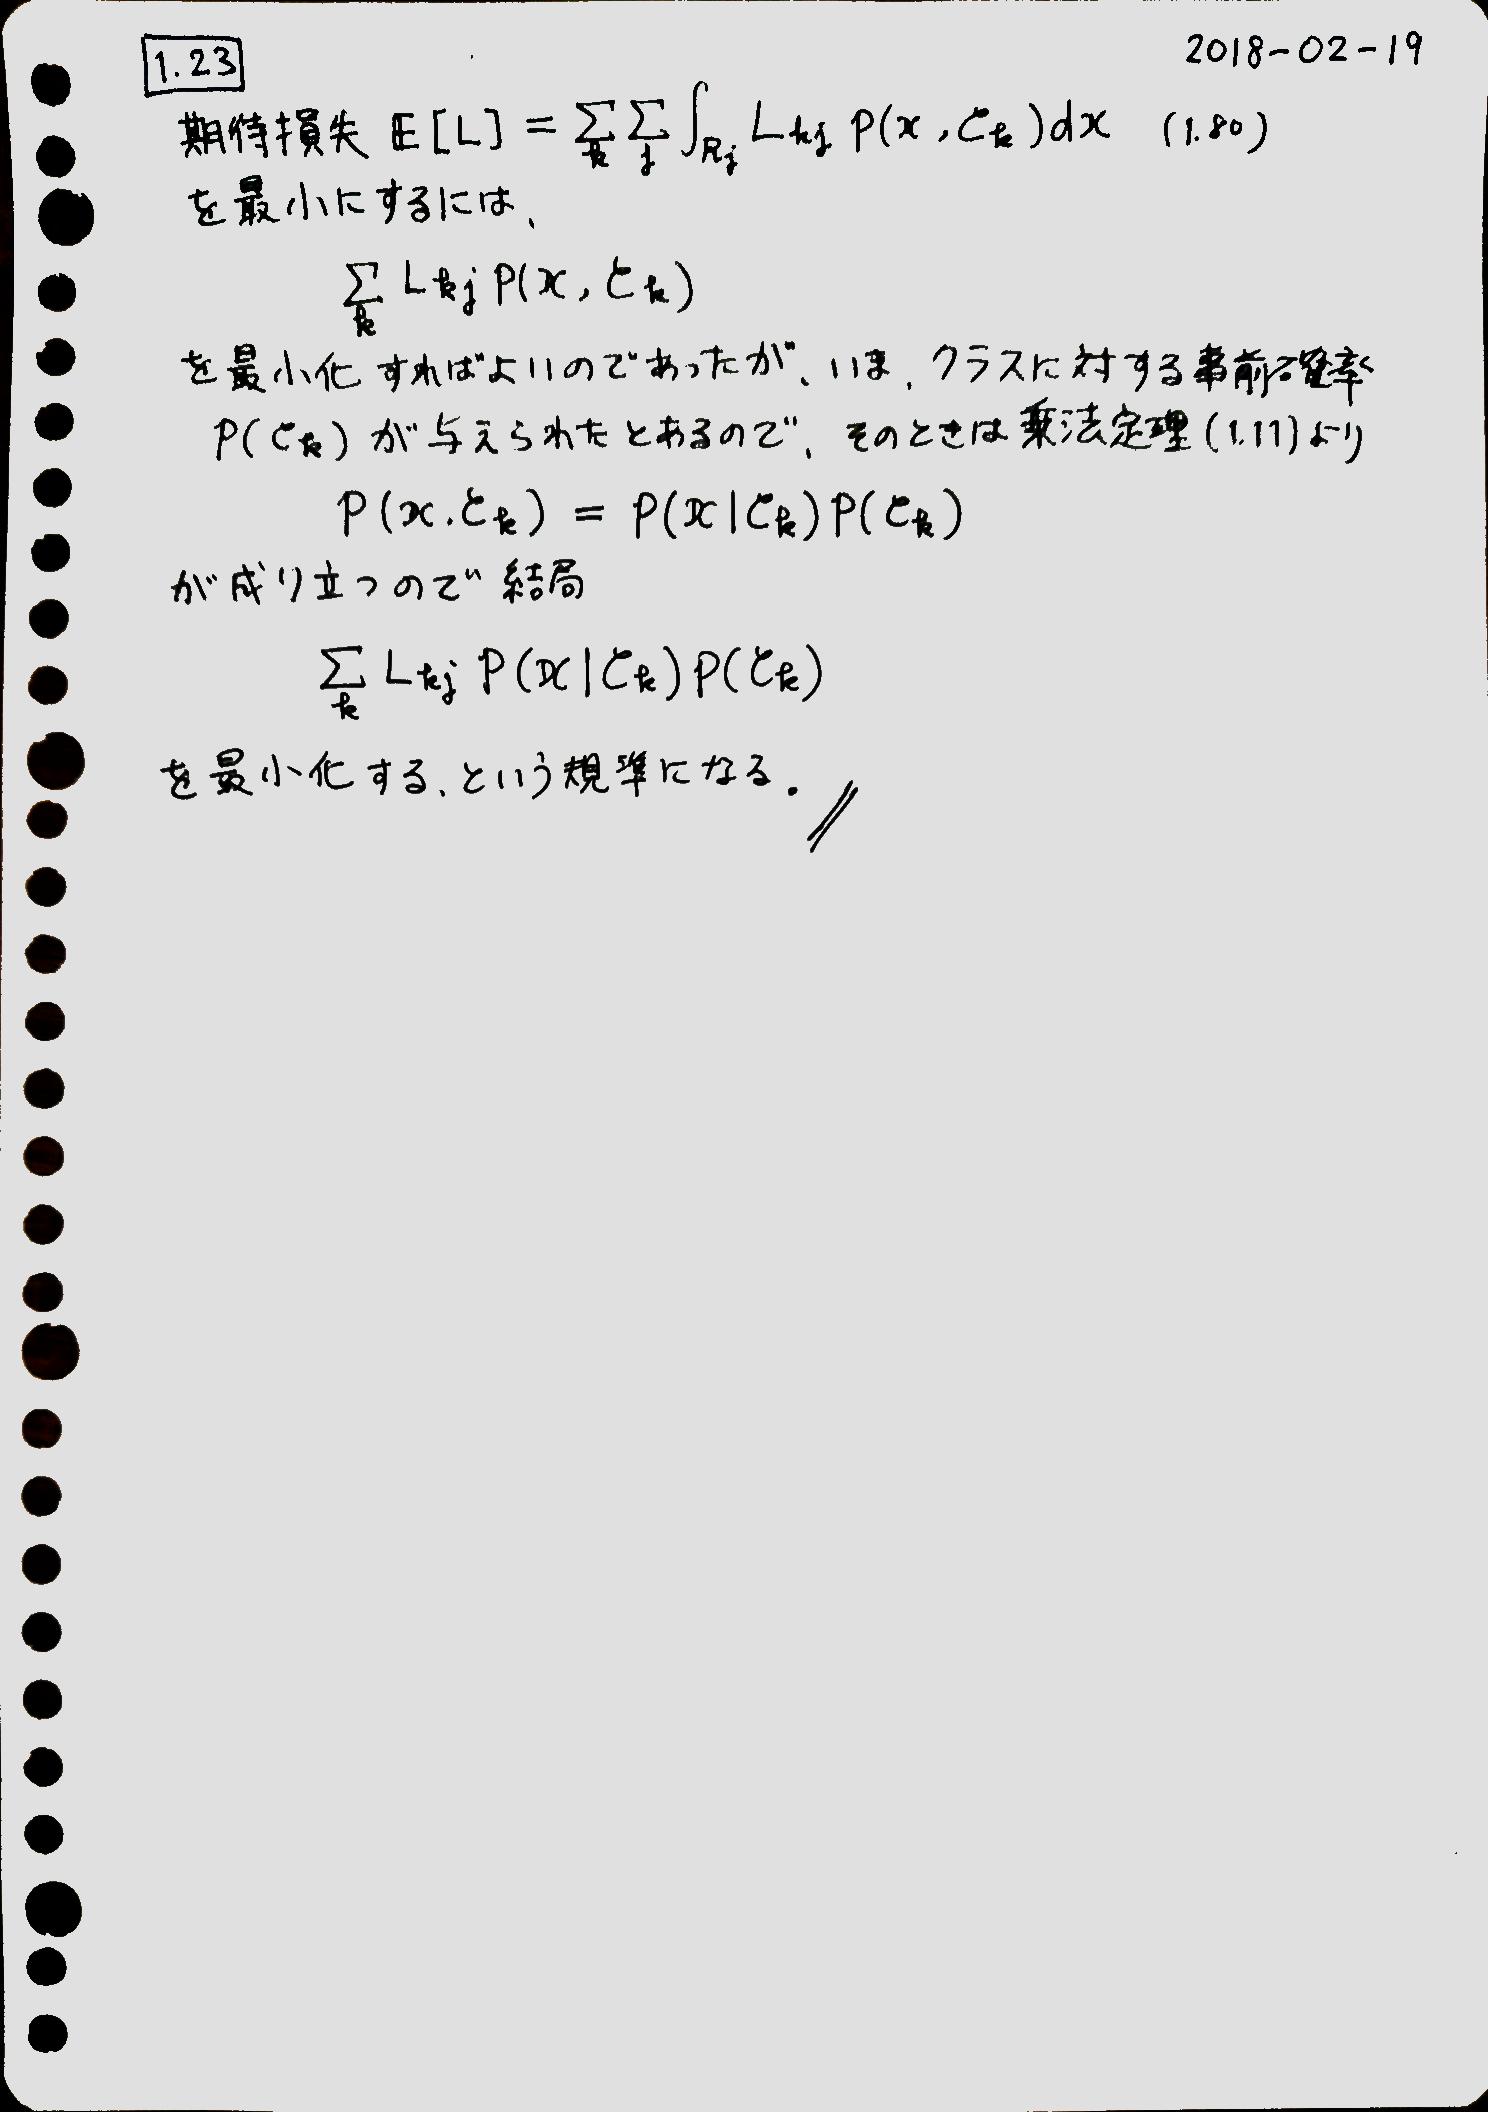 1.23
2018-02-19
期待損失 𝔼[L] = Σ_k Σ_j ∫_{R_j} L_{kj} p(x, C_k)dx (1.80)
を最小にするには、
Σ_k L_{kj} p(x, C_k)
を最小化すればよいのであったが、いま、クラスに対する事前確率
p(C_k) が与えられたとあるので、そのときは乗法定理(1.11)より
p(x, C_k) = p(x|C_k)p(C_k)
が成り立つので結局
Σ_k L_{kj} p(x|C_k)p(C_k)
を最小化する、という規準になる. //